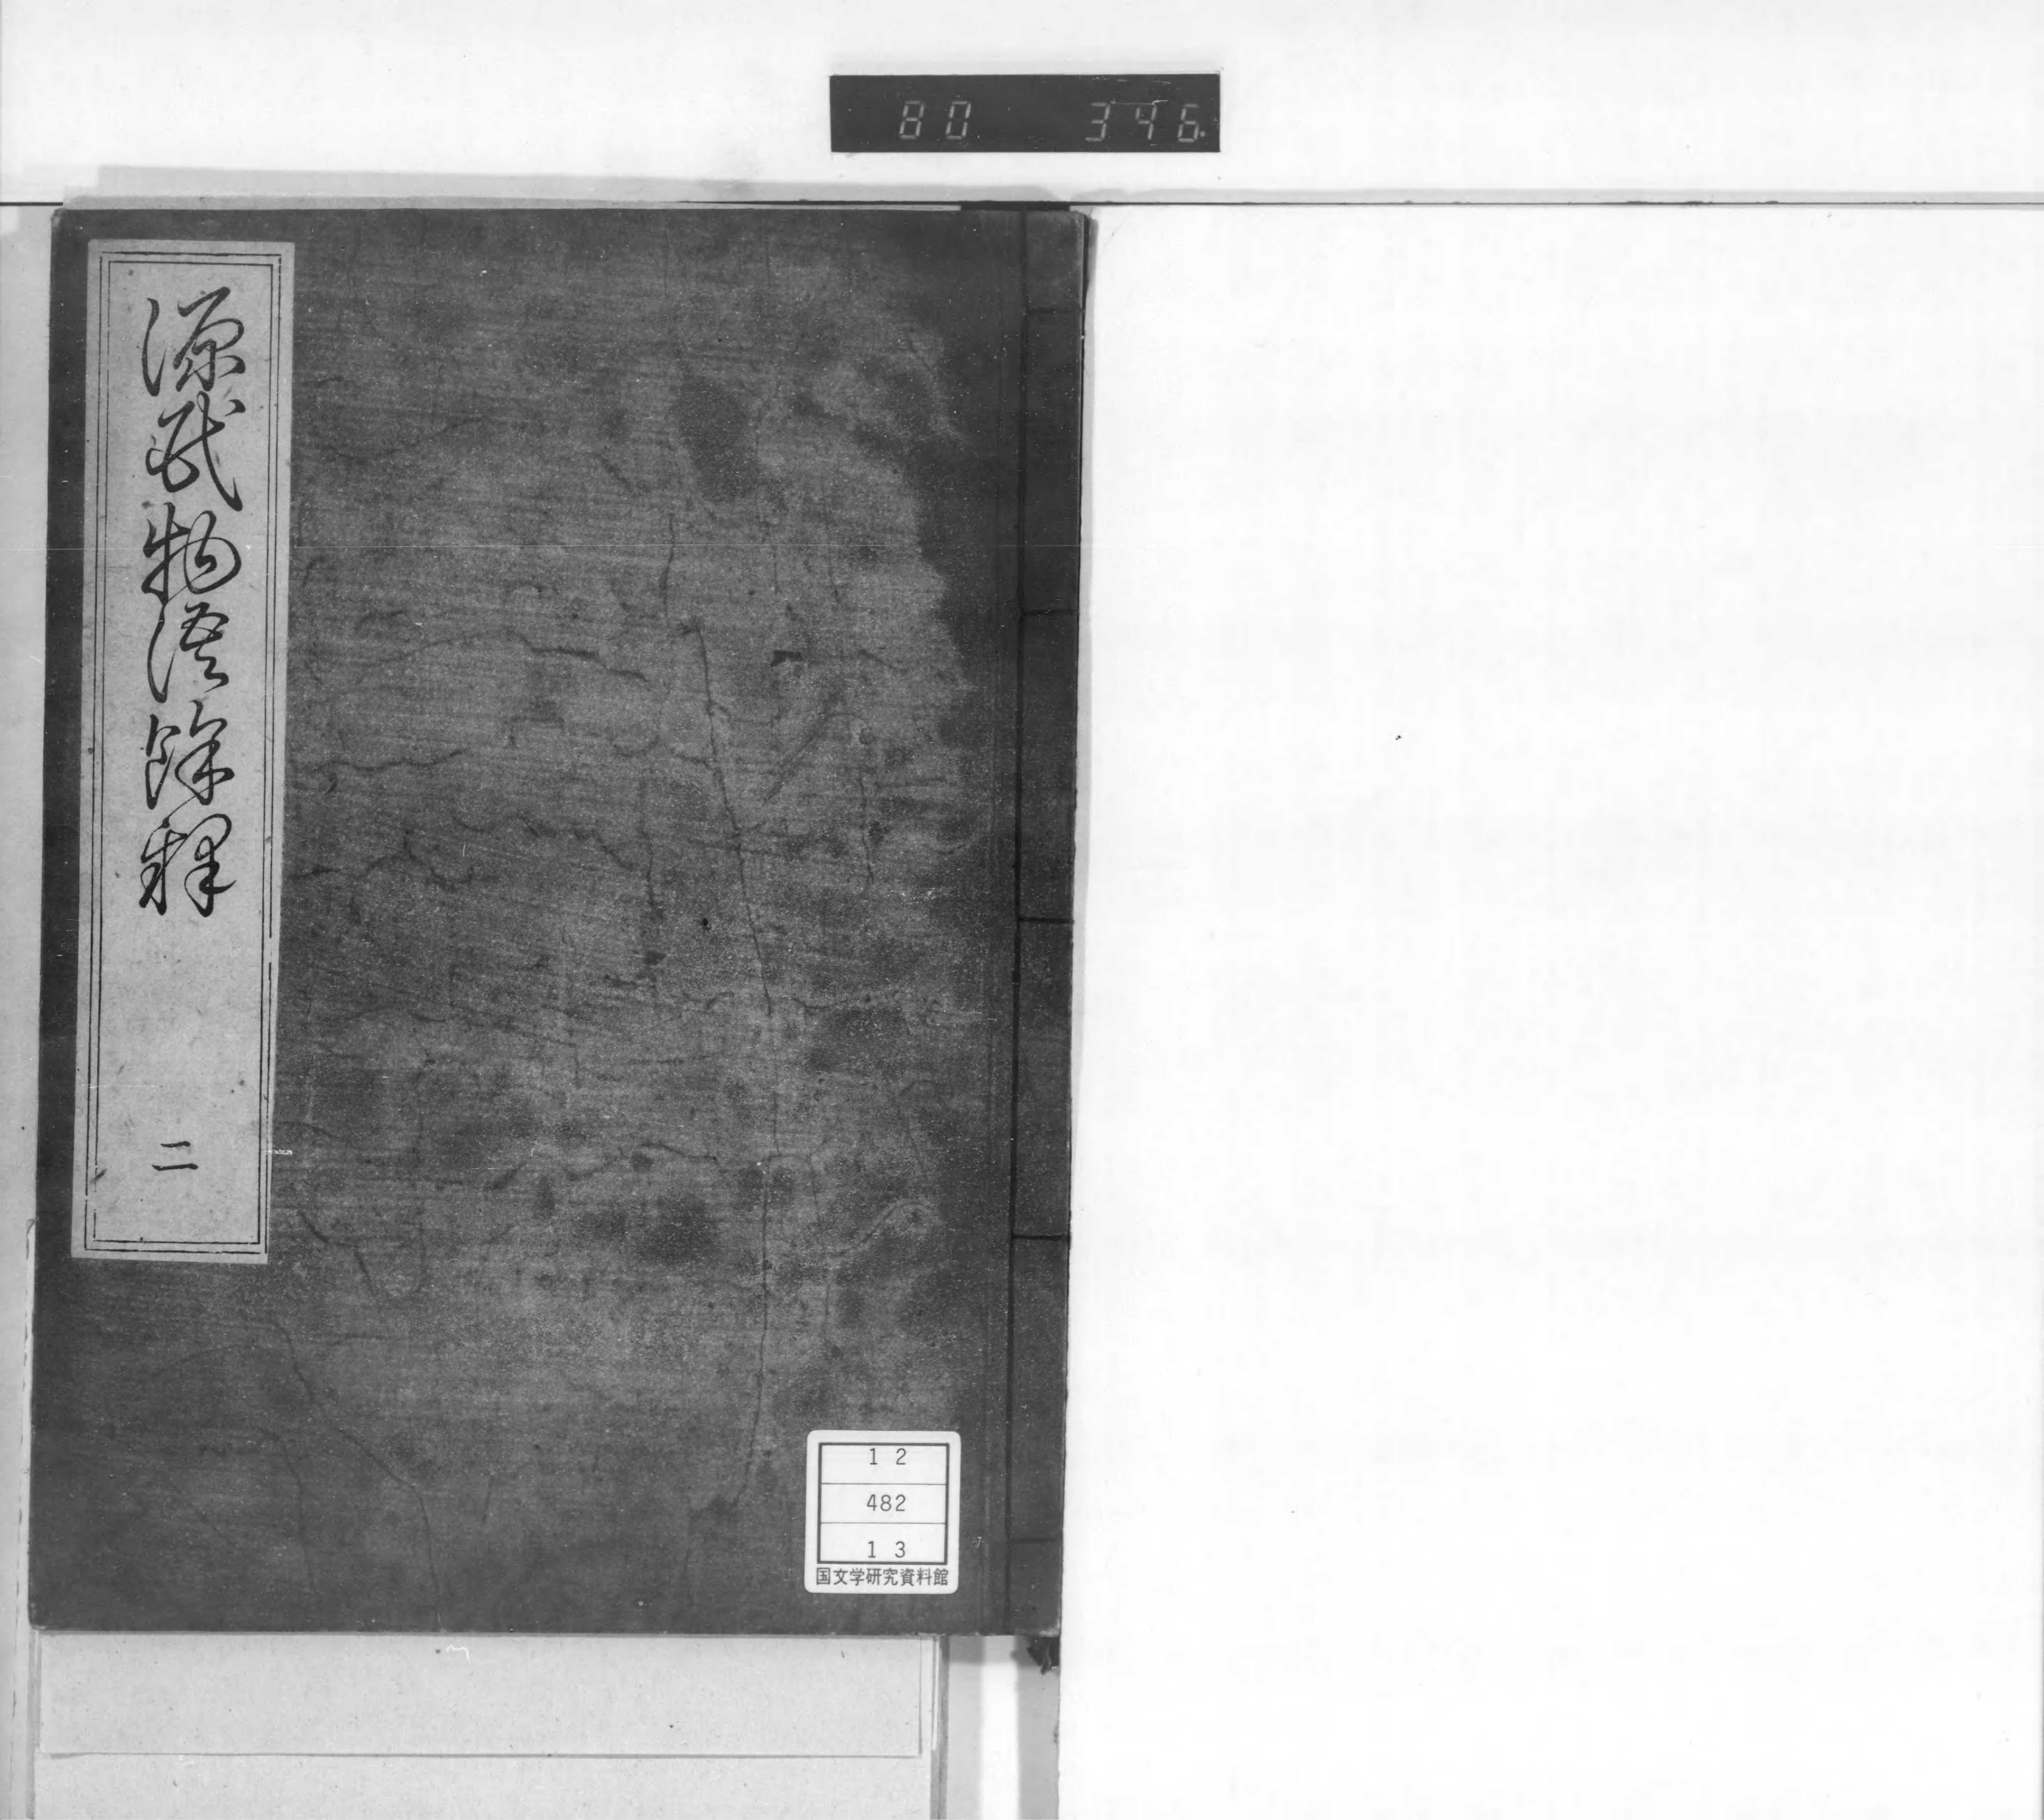 80 346.
源氏物語餘釋
二
12
482
13
国文学研究資料館